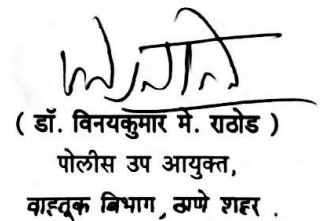 ( डॉ. विनयकुमार मे. राठोड )
पोलीस उप आयुक्त,
वाहतूक विभाग, ठाणे शहर .